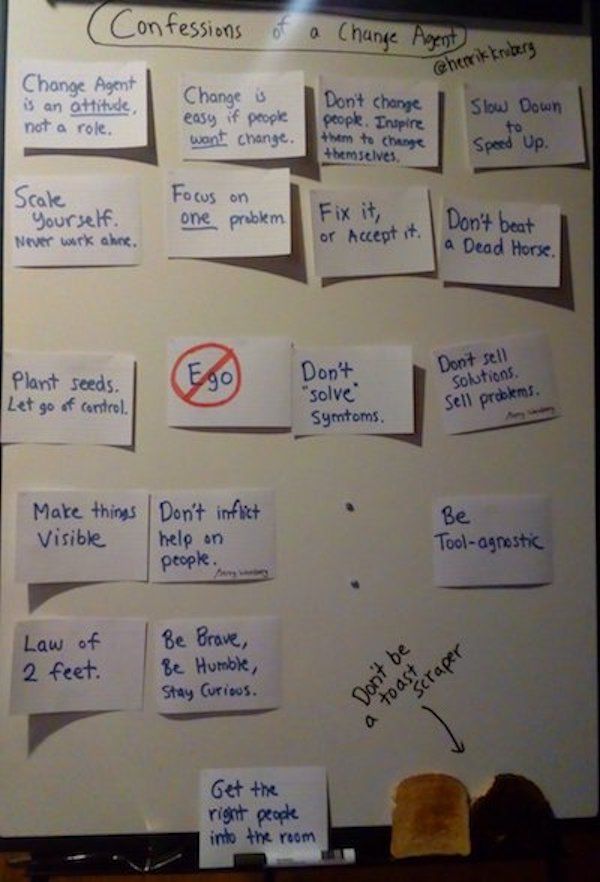 Confessions of a Change Agent
@henrikkniberg
Change Agent
is an attitude,
not a role.
Change is
easy if people
want change.
Don't change
people. Inspire
them to change
themselves.
Slow Down
to
Speed Up.
Scale
Yourself.
Never work alone.
Focus on
one problem
Fix it,
or Accept it.
Don't beat
a Dead Horse.
Plant seeds.
Let go of control.
Ego
Don't
"solve"
Symtoms.
Don't sell
Solutions.
Sell problems.
Make things
Visible
Don't inflict
help on
people.
Be
Tool-agnostic
Law of
2 feet.
Be Brave,
Be Humble,
Stay Curious.
Don't be
a toast
scraper
Get the
right people
into the room